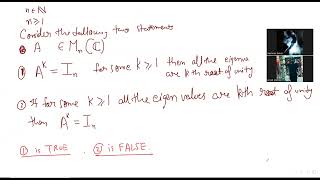 n∈ℕ
n≥1
Consider the following two statements
A ∈ Mₙ(ℂ)
① Aᵏ = Iₙ for some k≥1 then all the eigenva
are kth root of unity
② If for some k≥1 all the eigen values are kth root of unity
then Aᵏ = Iₙ
① is TRUE ② is FALSE.